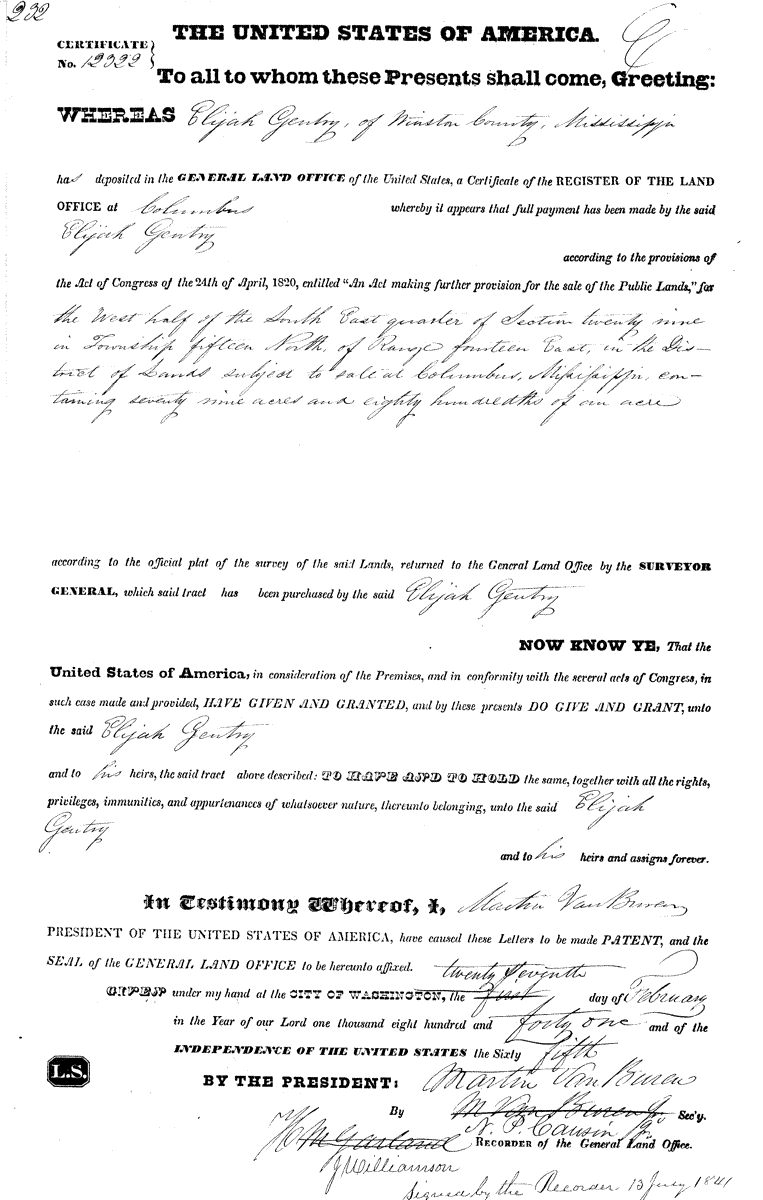 232
THE UNITED STATES OF AMERICA.
CERTIFICATE
No. 12322
To all to whom these Presents shall come, Greeting:
WHEREAS Elijah Gentry, of Winston County, Mississippi
has deposited in the GENERAL LAND OFFICE of the United States, a Certificate of the REGISTER OF THE LAND
OFFICE at Columbus whereby it appears that full payment has been made by the said
Elijah Gentry
according to the provisions of
the Act of Congress of the 24th of April, 1820, entitled "An Act making further provision for the sale of the Public Lands," for
the West half of the South East quarter of Section twenty nine
in Township fifteen North, of Range fourteen East, in the Dis-
trict of Lands subject to sale at Columbus, Mississippi, con-
taining seventy nine acres and eighty hundredths of an acre
according to the official plat of the survey of the said Lands, returned to the General Land Office by the SURVEYOR
GENERAL, which said tract has been purchased by the said Elijah Gentry
NOW KNOW YE, That the
United States of America, in consideration of the Premises, and in conformity with the several acts of Congress, in
such case made and provided, HAVE GIVEN AND GRANTED, and by these presents DO GIVE AND GRANT, unto
the said Elijah Gentry
and to his heirs, the said tract above described: TO HAVE AND TO HOLD the same, together with all the rights,
privileges, immunities, and appurtenances of whatsoever nature, thereunto belonging, unto the said Elijah
Gentry
and to his heirs and assigns forever.
In Testimony Whereof, I, Martin Van Buren
PRESIDENT OF THE UNITED STATES OF AMERICA, have caused these Letters to be made PATENT, and the
SEAL of the GENERAL LAND OFFICE to be hereunto affixed.
twenty seventh
GIVEN under my hand at the CITY OF WASHINGTON, the first day of February
in the Year of our Lord one thousand eight hundred and forty one and of the
INDEPENDENCE OF THE UNITED STATES the Sixty fifth
L.S.
BY THE PRESIDENT: Martin Van Buren
By M Van Buren Jr. Sec'y.
N. P. Causin Jr.
H M Garland RECORDER of the General Land Office.
J Williamson
Signed by the Recorder 13 July 1841